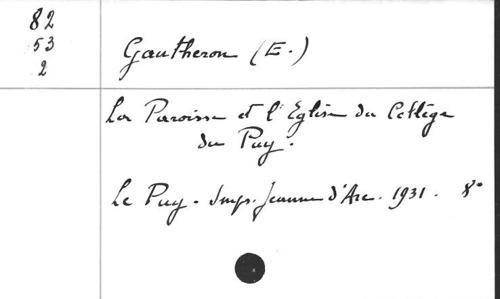 82
53
2
Gautheron (E.)
La Paroisse et l'Eglise du Collège
du Puy.
Le Puy. Imp. Jeanne d'Arc. 1931. 8°